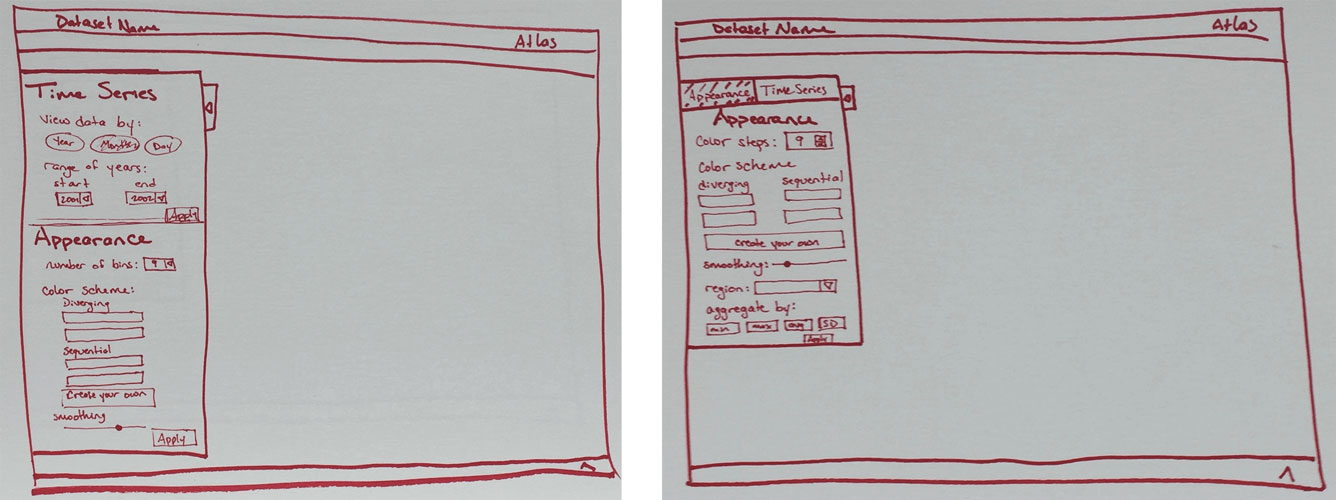 Dataset Name
Atlas
Time Series
View data by:
Year Months Day
range of years:
start end
2001 2002
Apply
Appearance
number of bins: 9
Color scheme:
Diverging
Sequential
Create your own
smoothing
Apply
Dataset Name
Atlas
Appearance Time Series
Appearance
Color steps: 9
Color scheme
diverging sequential
create your own
smoothing:
region:
aggregate by:
min max avg SD
Apply